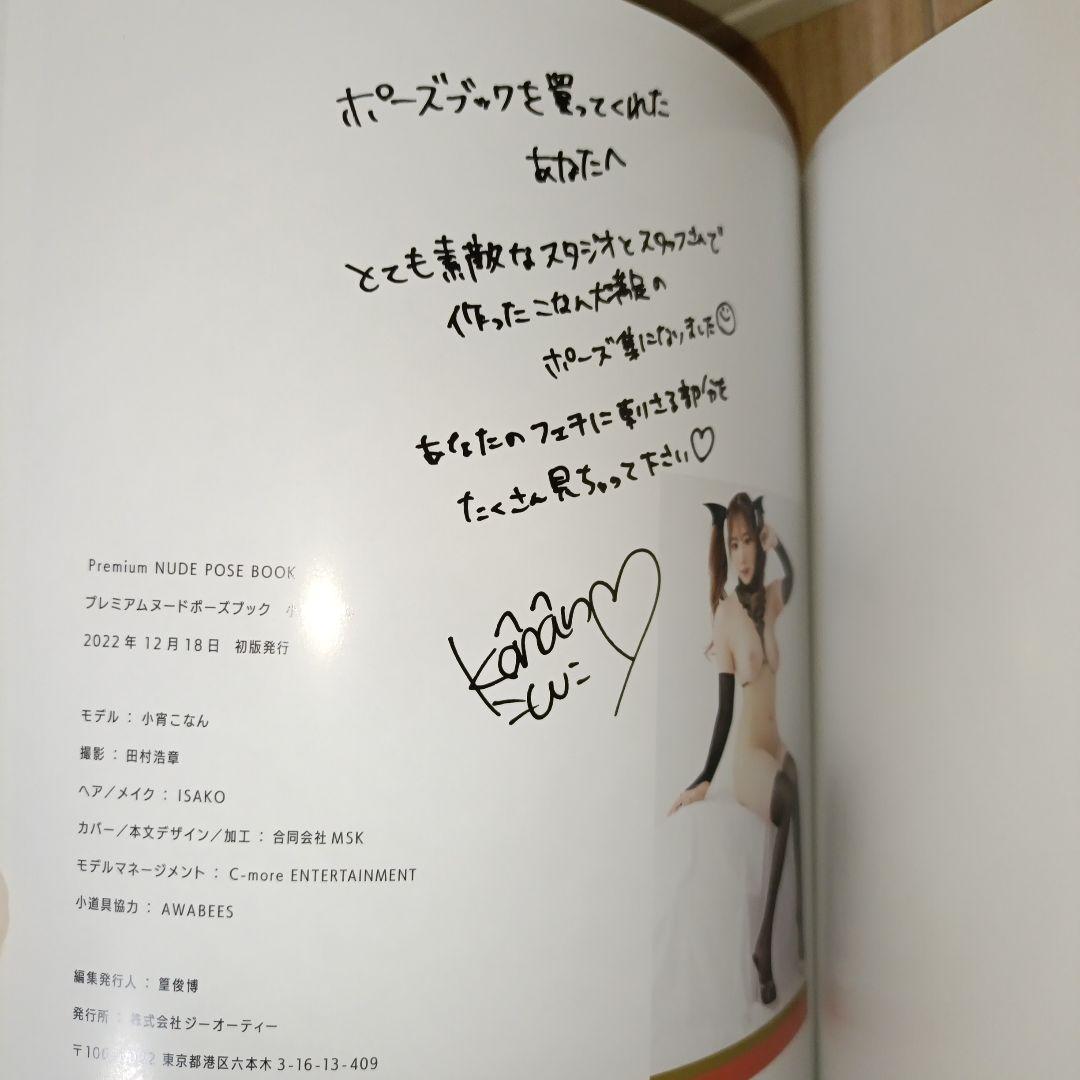 ポーズブックを買ってくれた
あなたへ
とても素敵なスタジオとスタッフさんで
作ったこなん大満足の
ポーズ集になりました
あなたのフェチに刺さる部分を
たくさん見ちゃって下さい♡
Konan
Premium NUDE POSE BOOK
プレミアムヌードポーズブック 小
2022年12月18日 初版発行
モデル : 小宵こなん
撮影 : 田村浩章
ヘア/メイク : ISAKO
カバー/本文デザイン/加工 : 合同会社MSK
モデルマネージメント : C-more ENTERTAINMENT
小道具協力 : AWABEES
編集発行人 : 篁俊博
発行所 : 株式会社ジーオーティー
東京都港区六本木3-16-13-409